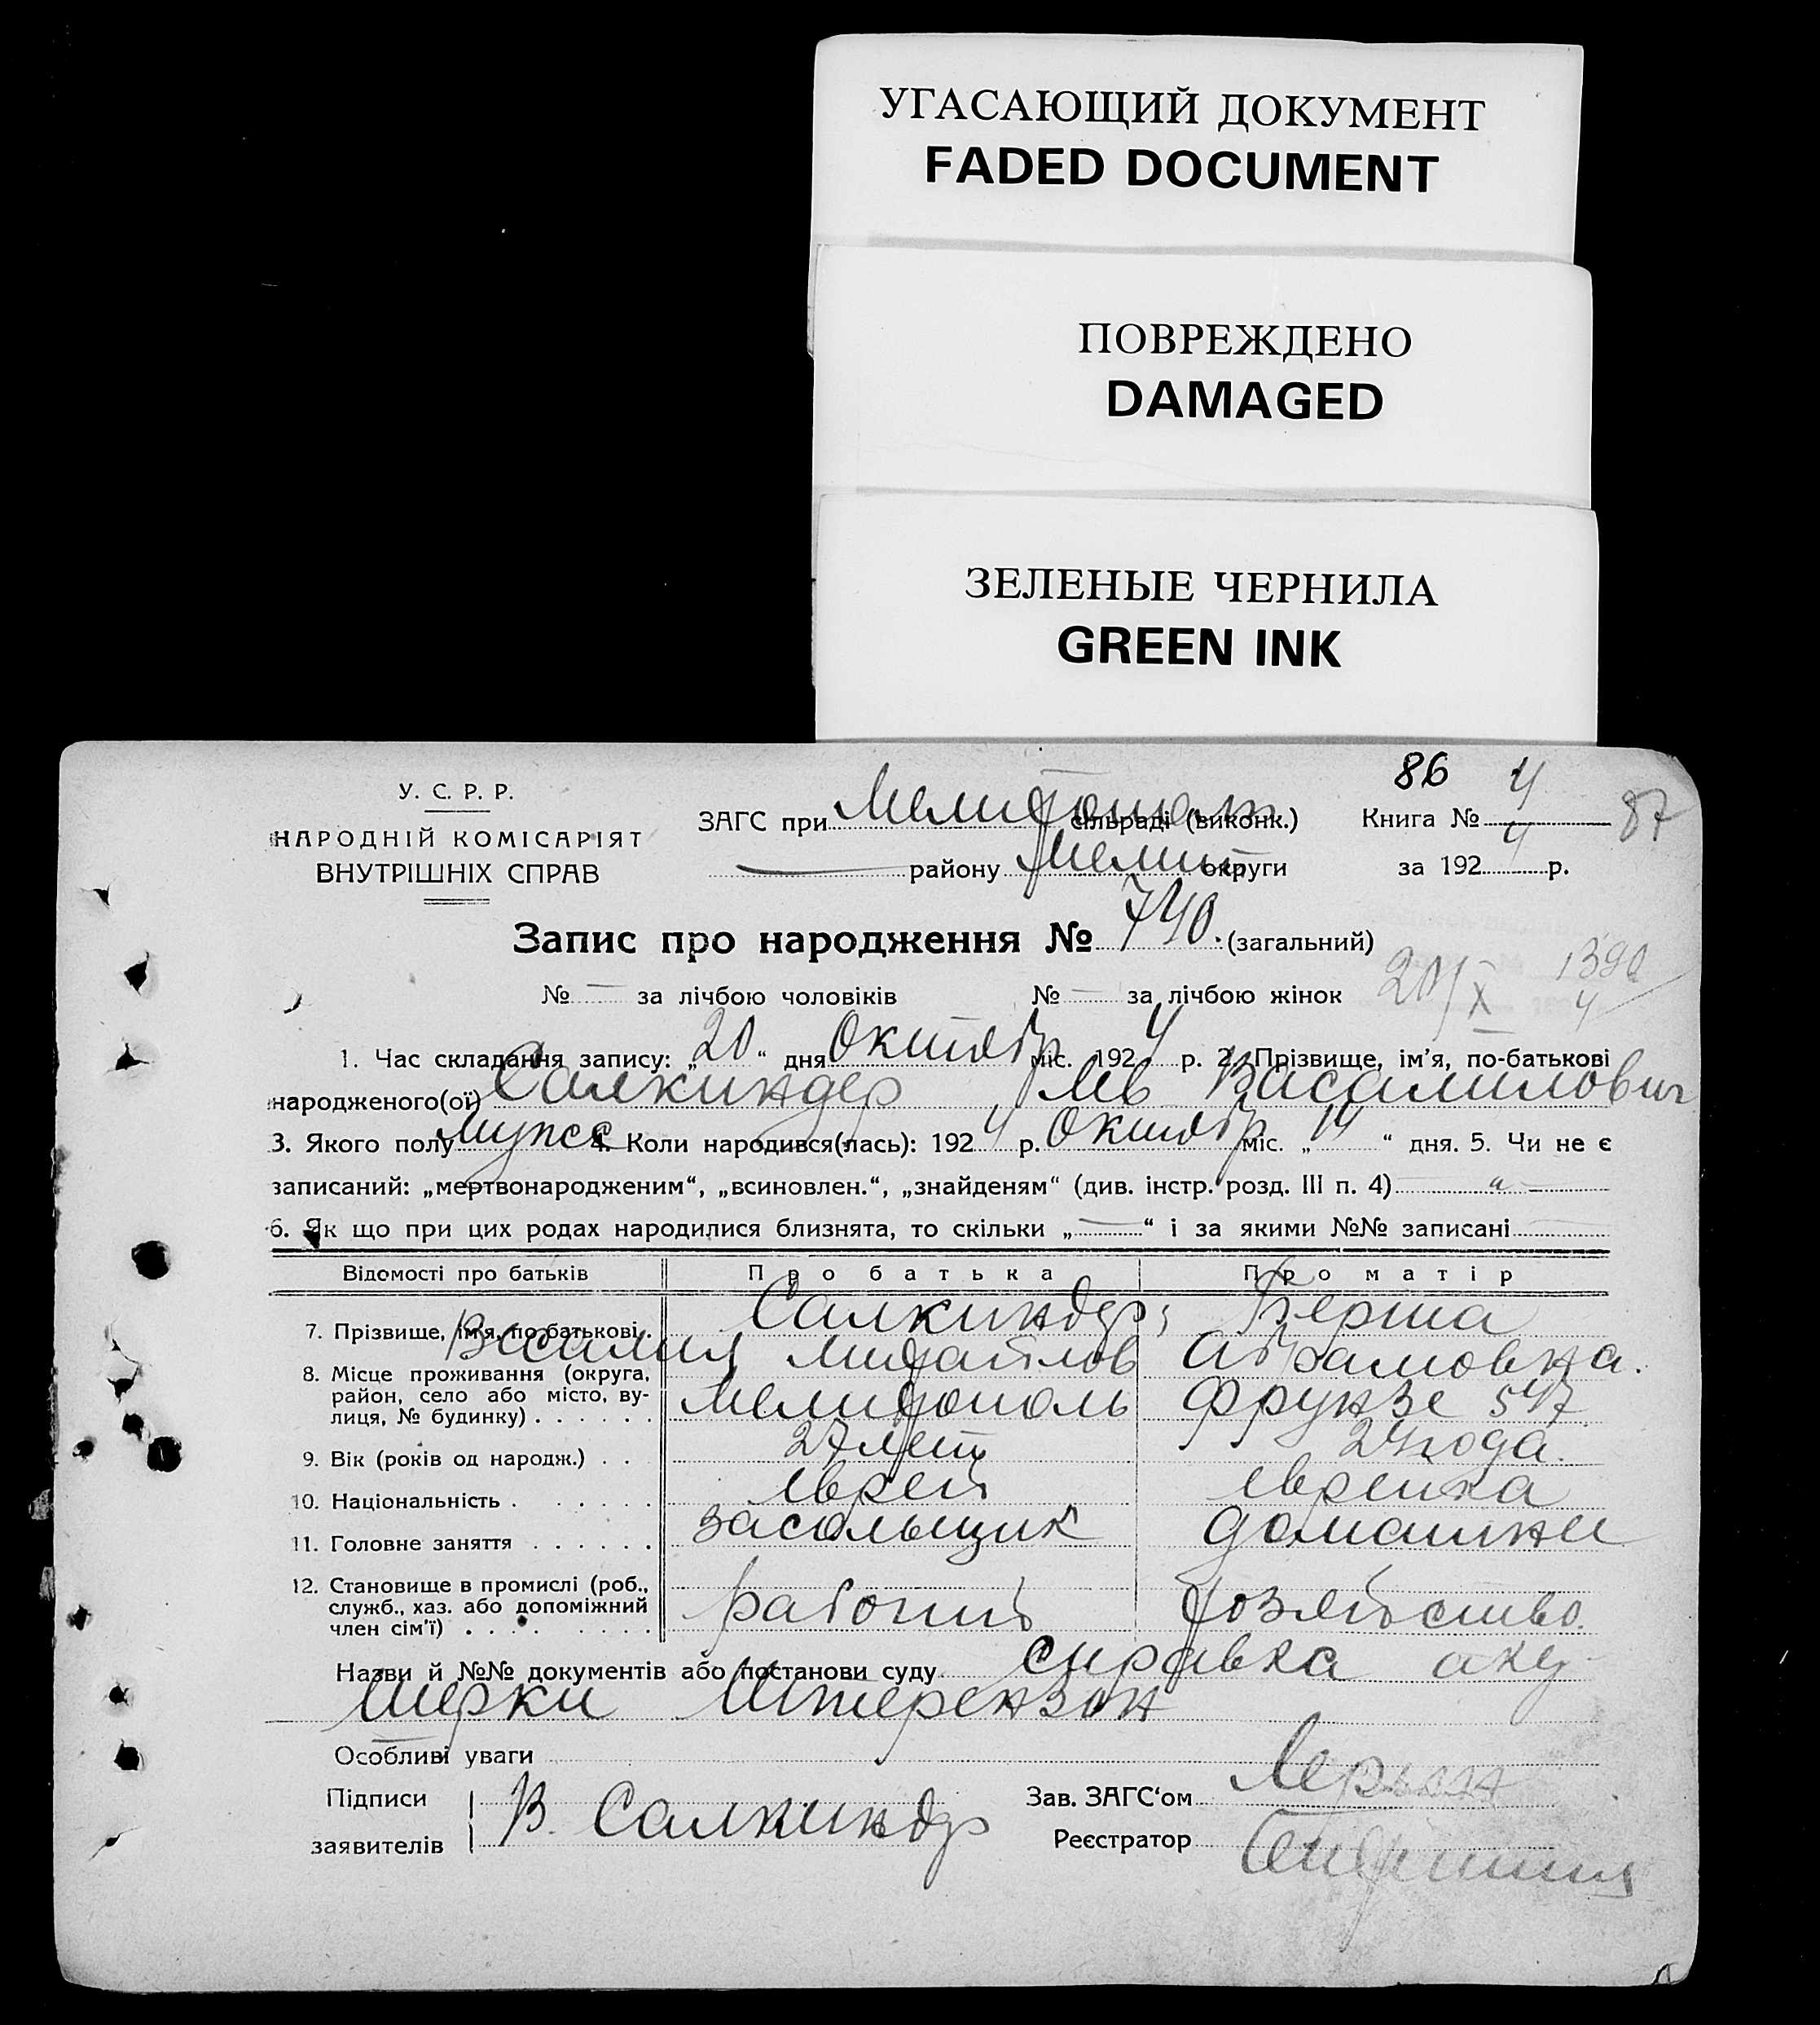 УГАСАЮЩИЙ ДОКУМЕНТ
FADED DOCUMENT
ПОВРЕЖДЕНО
DAMAGED
ЗЕЛЕНЫЕ ЧЕРНИЛА
GREEN INK
86
87
У. С. Р. Р.
НАРОДНІЙ КОМІСАРІЯТ
ВНУТРІШНІХ СПРАВ
ЗАГС при Мелитополь сільраді (виконк.) Книга № 4
району Мелит округи за 1924 р.
Запис про народження № 740. (загальний)
20/X 1390
4
№ — за лічбою чоловіків № — за лічбою жінок
1. Час складання запису: „20“ дня Октябр міс. 1924 р. 2. Прізвище, ім’я, по-батькові
народженого(ої) Салкиндер Лев Васамилович
3. Якого полу мужск 4. Коли народився(лась): 1924 р. Октябр міс. „14“ дня. 5. Чи не є
записаний: „мертвонародженим“, „всиновлен.“, „знайденям“ (див. інстр. розд. III п. 4) „ —
6. Як що при цих родах народилися близнята, то скільки „—“ і за якими №№ записані —
Відомості про батьків Про батька Про матір
7. Прізвище, ім’я, по-батькові . Салкиндер; Берта
Васамил Михайлов Абрамовна.
8. Місце проживання (округа,
район, село або місто, ву-
лиця, № будинку) . . . . . . Мелитополь Фрунзе 547
9. Вік (років од народж.) . . 27 лет 24 года.
10. Національність . . . . . . еврей еврейка
11. Головне заняття . . . . . . засольщик домашнее
12. Становище в промислі (роб.,
служб., хаз. або допоміжний
член сім’ї) . . . . . . . . рабочий хозяйство.
Назви й №№ документів або постанови суду справка аку-
шерки Штерензон
Особливі уваги
Підписи
заявителів В. Салкиндр
Зав. ЗАГС‘ом
Реєстратор